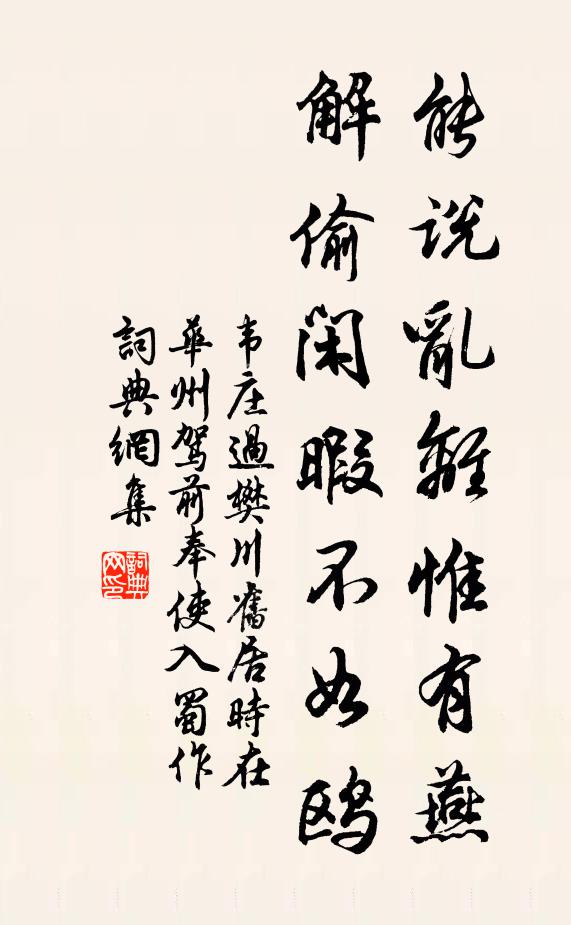 能说亂離惟有燕
解偷闲暇不如鸥
韦庄過樊川舊居時在
華州駕前奉使入蜀作
詞典網集
詞典網印